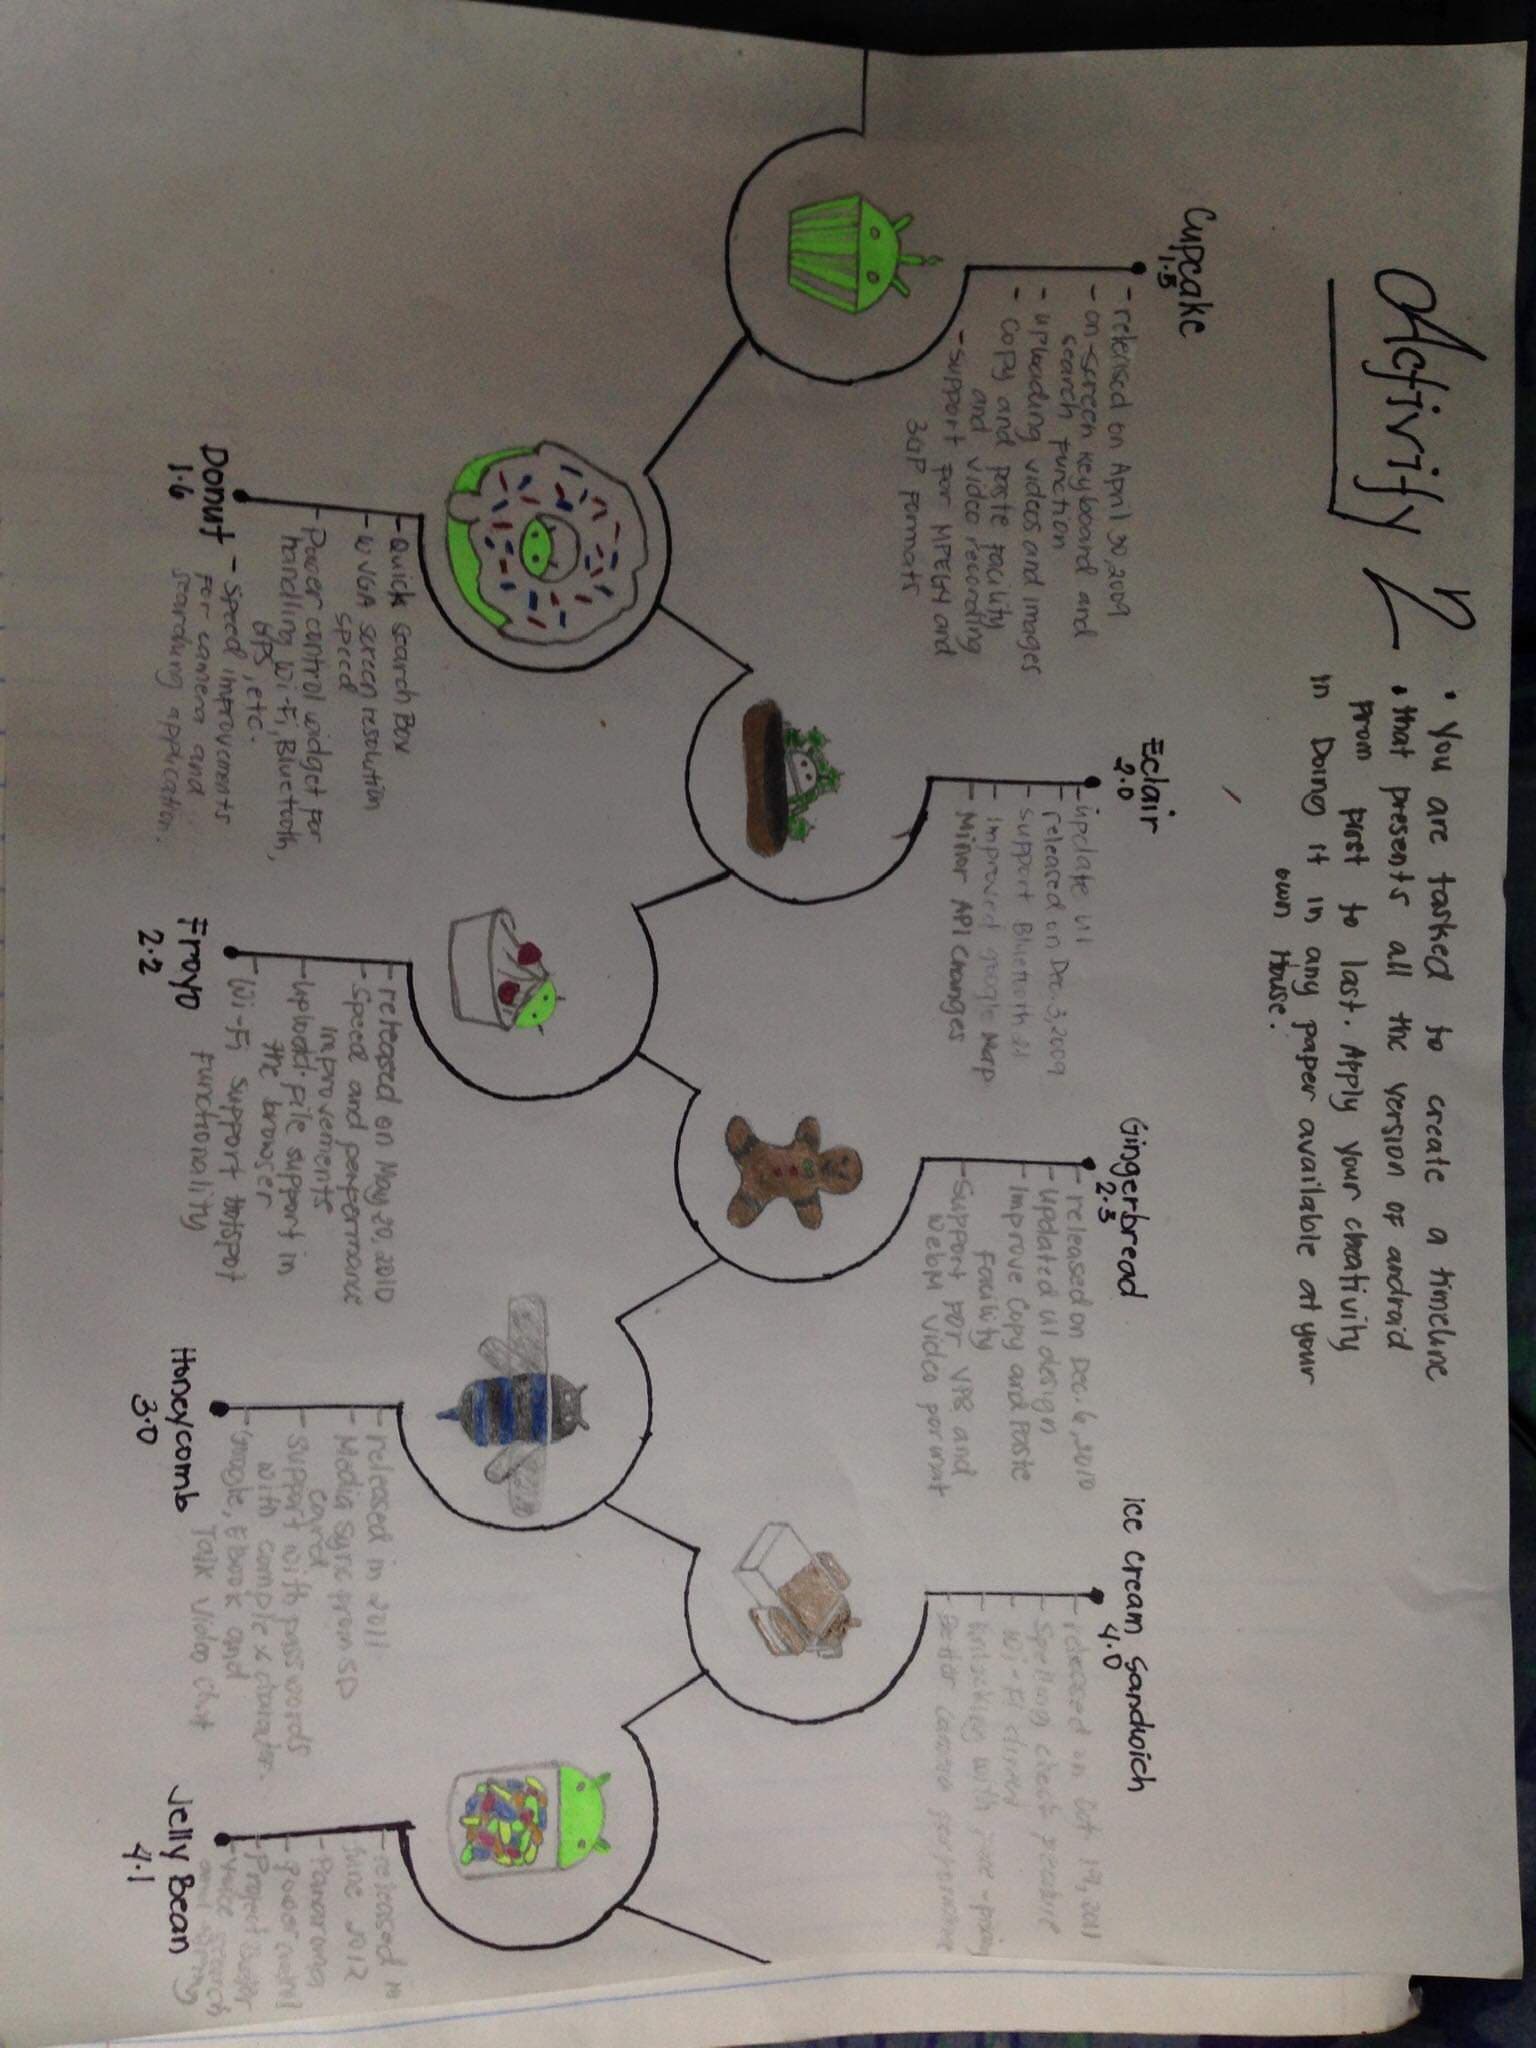 Activity 2
• You are tasked to create a timeline
• that presents all the version of android
from first to last. Apply your creativity
in Doing it in any paper available at your
own House.
Cupcake
1.5
- released on April 30, 2009
- on-screen keyboard and
search function
- uploading videos and images
- copy and paste facility
and video recording
- support for MPEG4 and
3GP formats
Donut
1.6
- Quick search Box
- WVGA screen resolution
speed
- Power control widget for
handling Wi-Fi, Bluetooth,
GPS, etc.
- speed improvements
for camera and
searching application.
Eclair
2.0
- update UI
- released on Dec. 3, 2009
- support Bluetooth 2.1
- improved google Map
- Minor API Changes
Froyo
2.2
- released on May 20, 2010
- speed and performance
improvements
- upload file support in
the browser
- Wi-Fi support Hotspot
functionality
Gingerbread
2.3
- released on Dec. 6, 2010
- updated UI design
- Improve Copy and Paste
Facility
- support for VP8 and
WebM video format
Honeycomb
3.0
- released in 2011
- Media sync from SD
card
- support with passwords
with complex character.
- Google, Ebook and
Talk video chat
ice cream Sandwich
4.0
- released on Oct. 19, 2011
- Spelling check feature
- Wi-Fi direct
- with
- Better camera performance
Jelly Bean
4.1
- released in
June 2012
- Panorama
- Project butter
- voice search
and typing